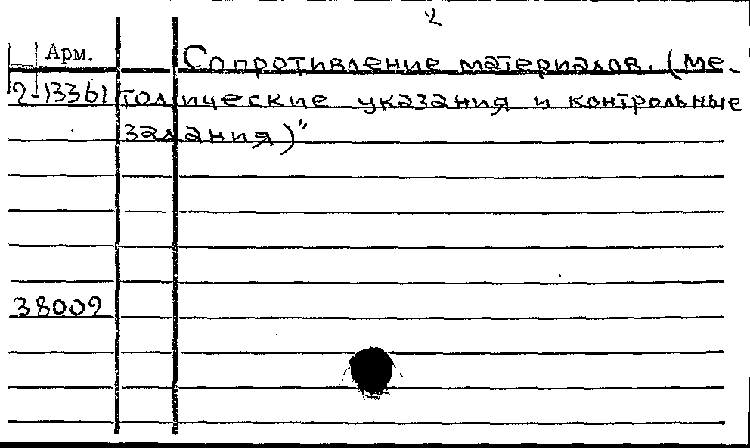 2
Арм.
Сопротивление материалов. (Ме-
2-13361 тодические указания и контрольные
задания)"
38009